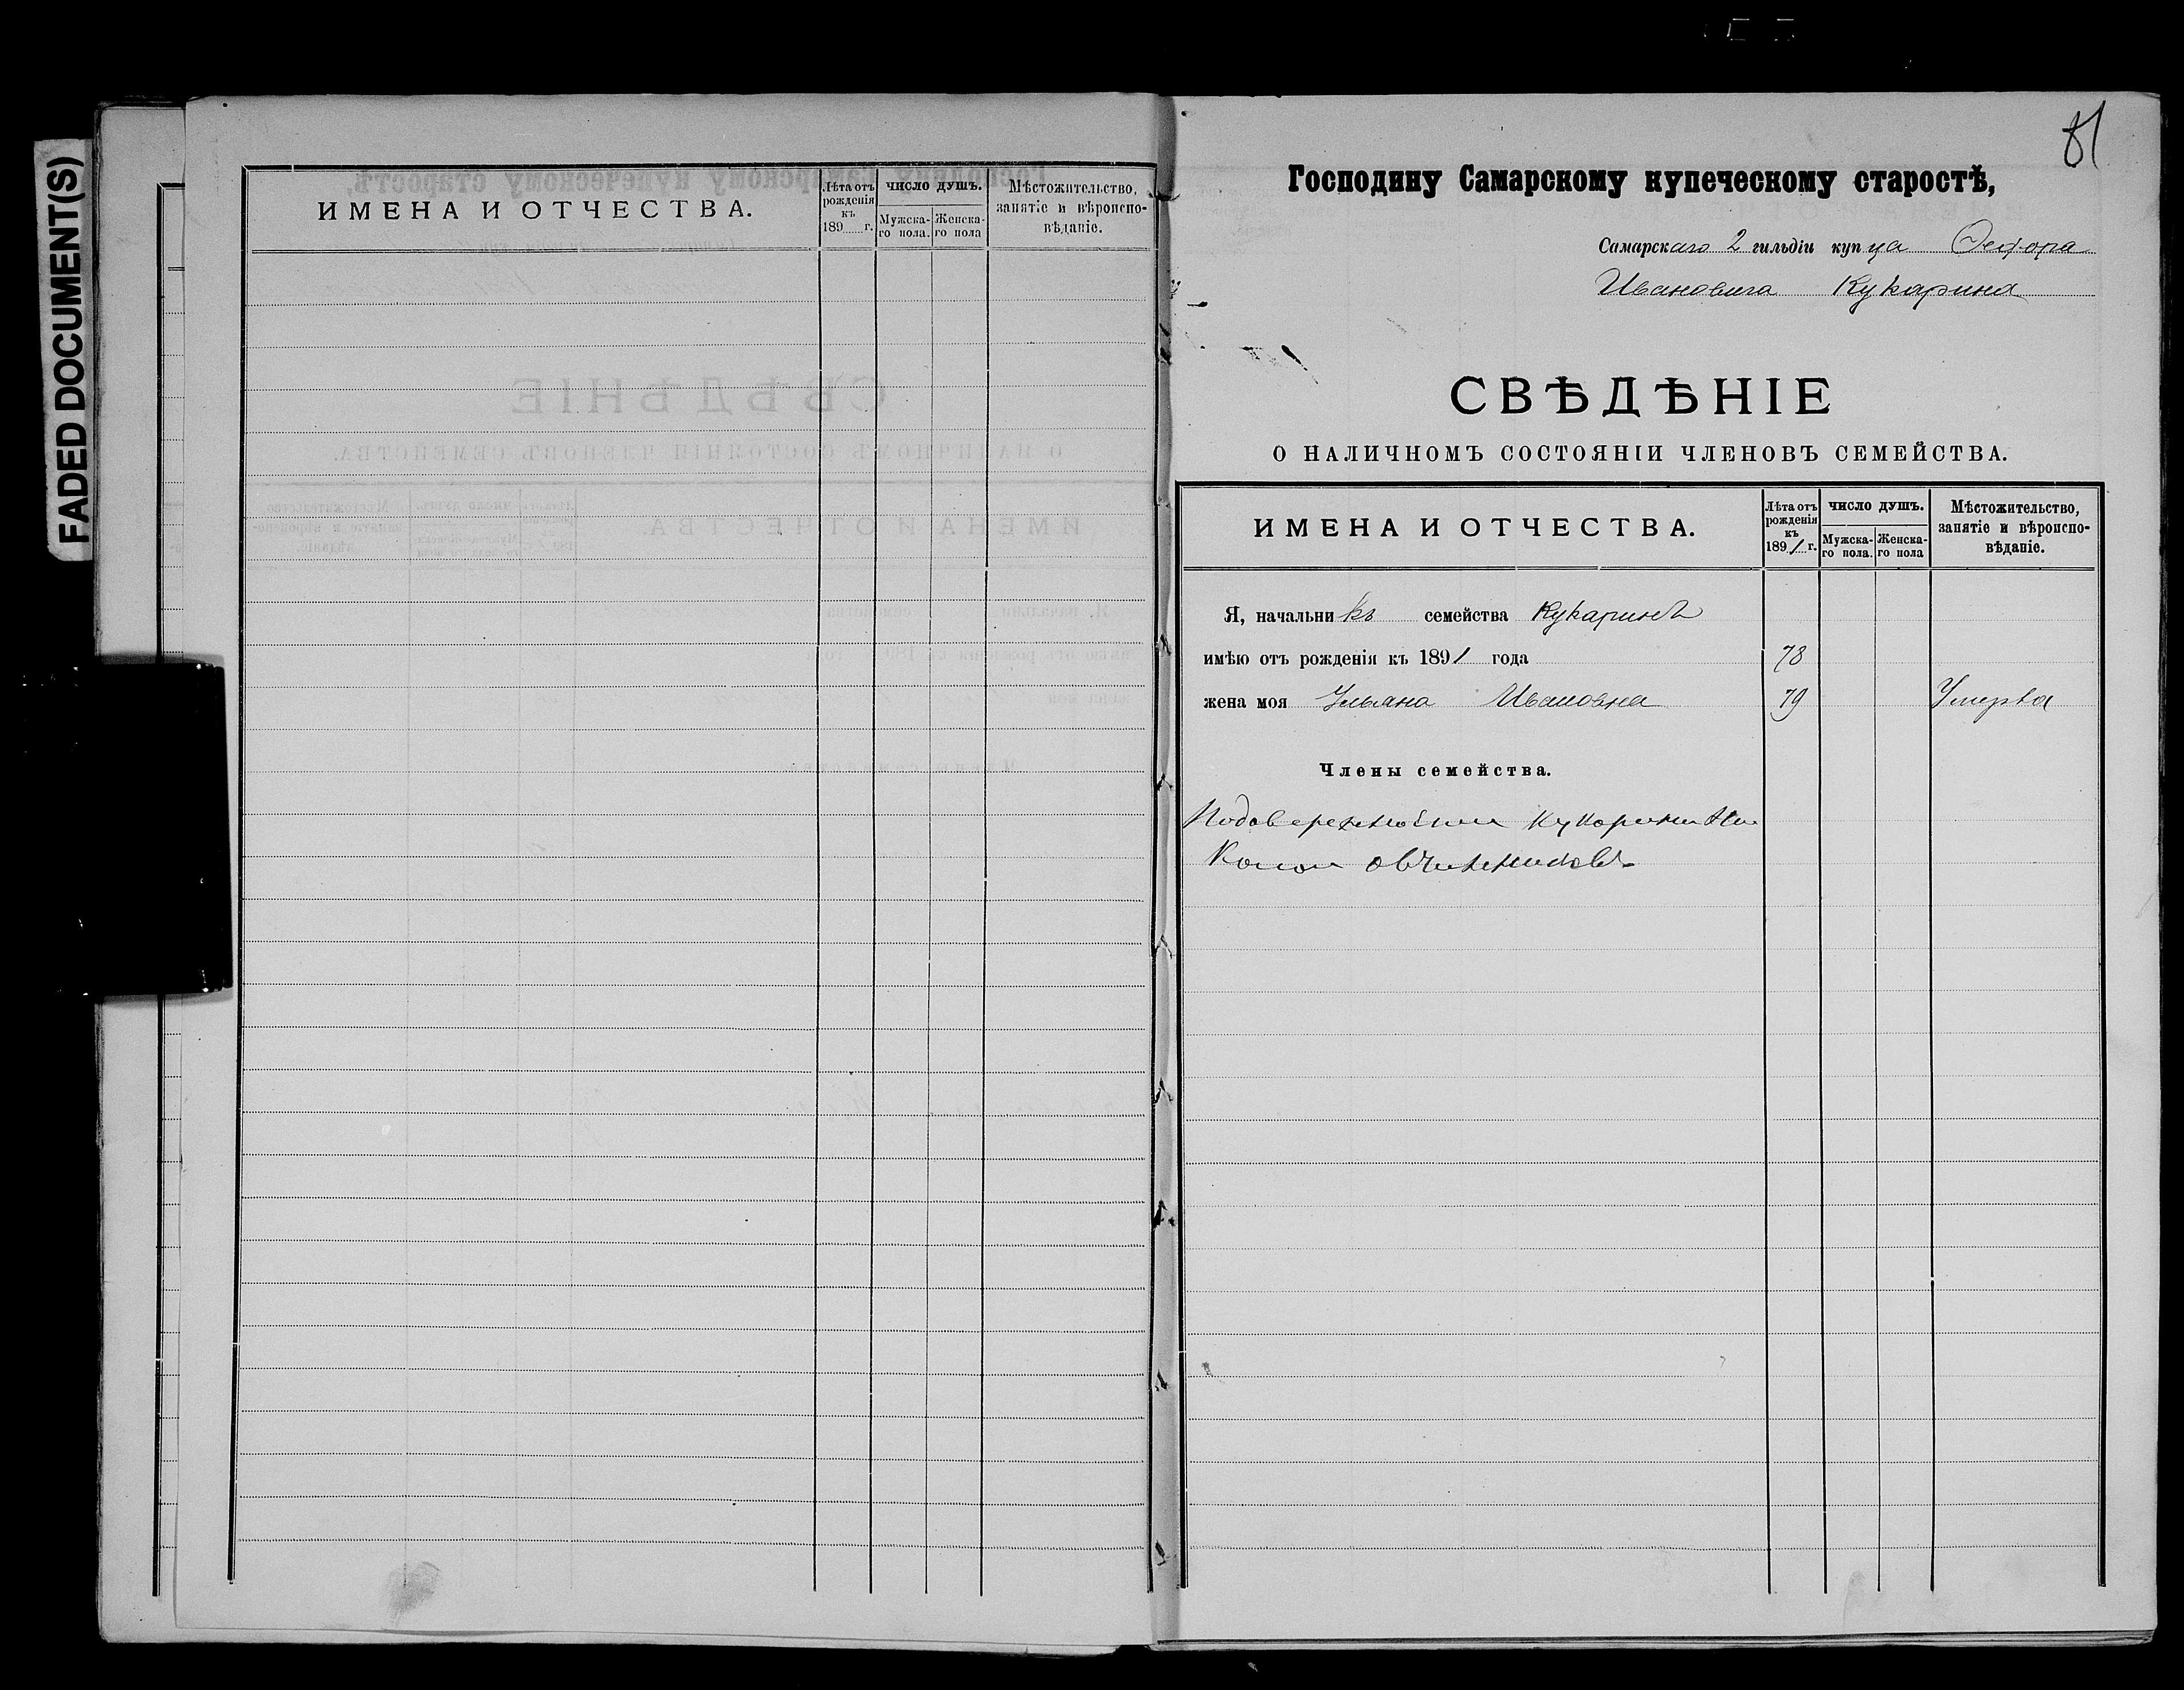 FADED DOCUMENT(S)
ИМЕНА И ОТЧЕСТВА.
Лѣта отъ рожденія къ 189 г.
ЧИСЛО ДУШЪ.
Мужска-го пола.
Женска-го пола
Мѣстожительство, занятіе и вѣроиспо-вѣданіе.
81
Господину Самарскому купеческому старостѣ,
Самарскаго 2 гильдіи купца Ѳедора
Ивановича Кукарина
СВѢДѢНІЕ
О НАЛИЧНОМЪ СОСТОЯНІИ ЧЛЕНОВЪ СЕМЕЙСТВА.
ИМЕНА И ОТЧЕСТВА.
Лѣта отъ рожденія къ 1891 г.
ЧИСЛО ДУШЪ.
Мужска-го пола.
Женска-го пола
Мѣстожительство, занятіе и вѣроиспо-вѣданіе.
Я, начальникъ семейства Кукаринъ
имѣю отъ рожденія къ 1891 года 78
жена моя Ульяна Ивановна 79 Умерла
Члены семейства.